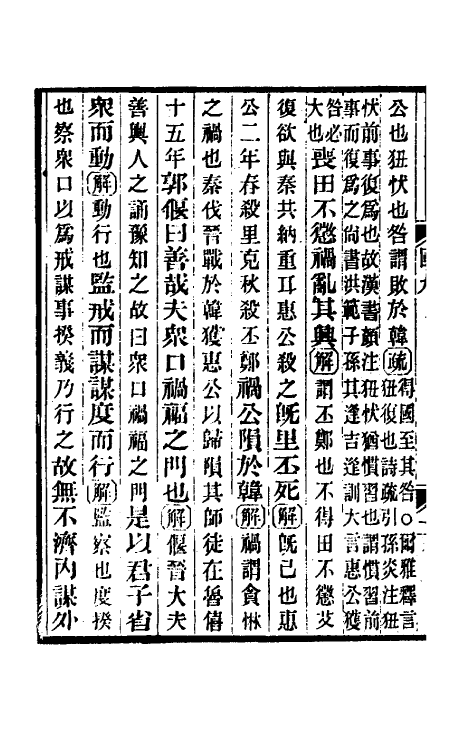 公也狃忕也咎謂敗於韓疏得國至其咎○爾雅釋言
狃復也詩疏引孫炎注狃
忕前事復爲也故漢書顏注狃忕猶慣習也謂慣習前
事而復爲之尚書洪範子孫其逢吉逢訓大言惠公獲
咎必
大也
喪田不懲禍亂其興解謂丕鄭也不得田不懲艾
復欲與秦共納重耳惠公殺之旣里丕死解旣已也惠
公二年春殺里克秋殺丕鄭禍公隕於韓解禍謂貪惏
之禍也秦伐晉戰於韓獲惠公以歸隕其師徒在魯僖
十五年郭偃曰善哉夫衆口禍福之門也解偃晉大夫
善輿人之誦豫知之故曰衆口禍福之門是以君子省
衆而動解動行也監戒而謀謀度而行解監察也度揆
也察衆口以爲戒謀事揆義乃行之故無不濟內謀外